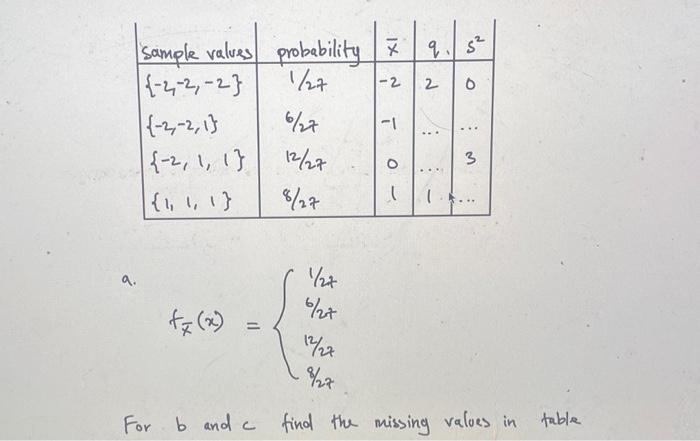 sample values probability x̄ q. s²
{-2,-2,-2} 1/27 -2 2 0
{-2,-2,1} 6/27 -1 ... ...
{-2, 1, 1} 12/27 0 ... 3
{1, 1, 1} 8/27 1 1 ...
a.
1/27
6/27
f_x̄(x) = {
12/27
8/27
For b and c find the missing values in table